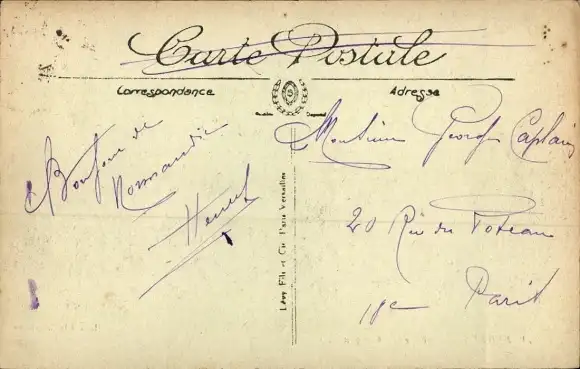 Carte Postale
Correspondance
Adresse
Bonjour de
Normandie
Monsieur Georges Caplain
20 Rue du Poteau
18e Paris
Lévy Fils et Cie Paris Versailles